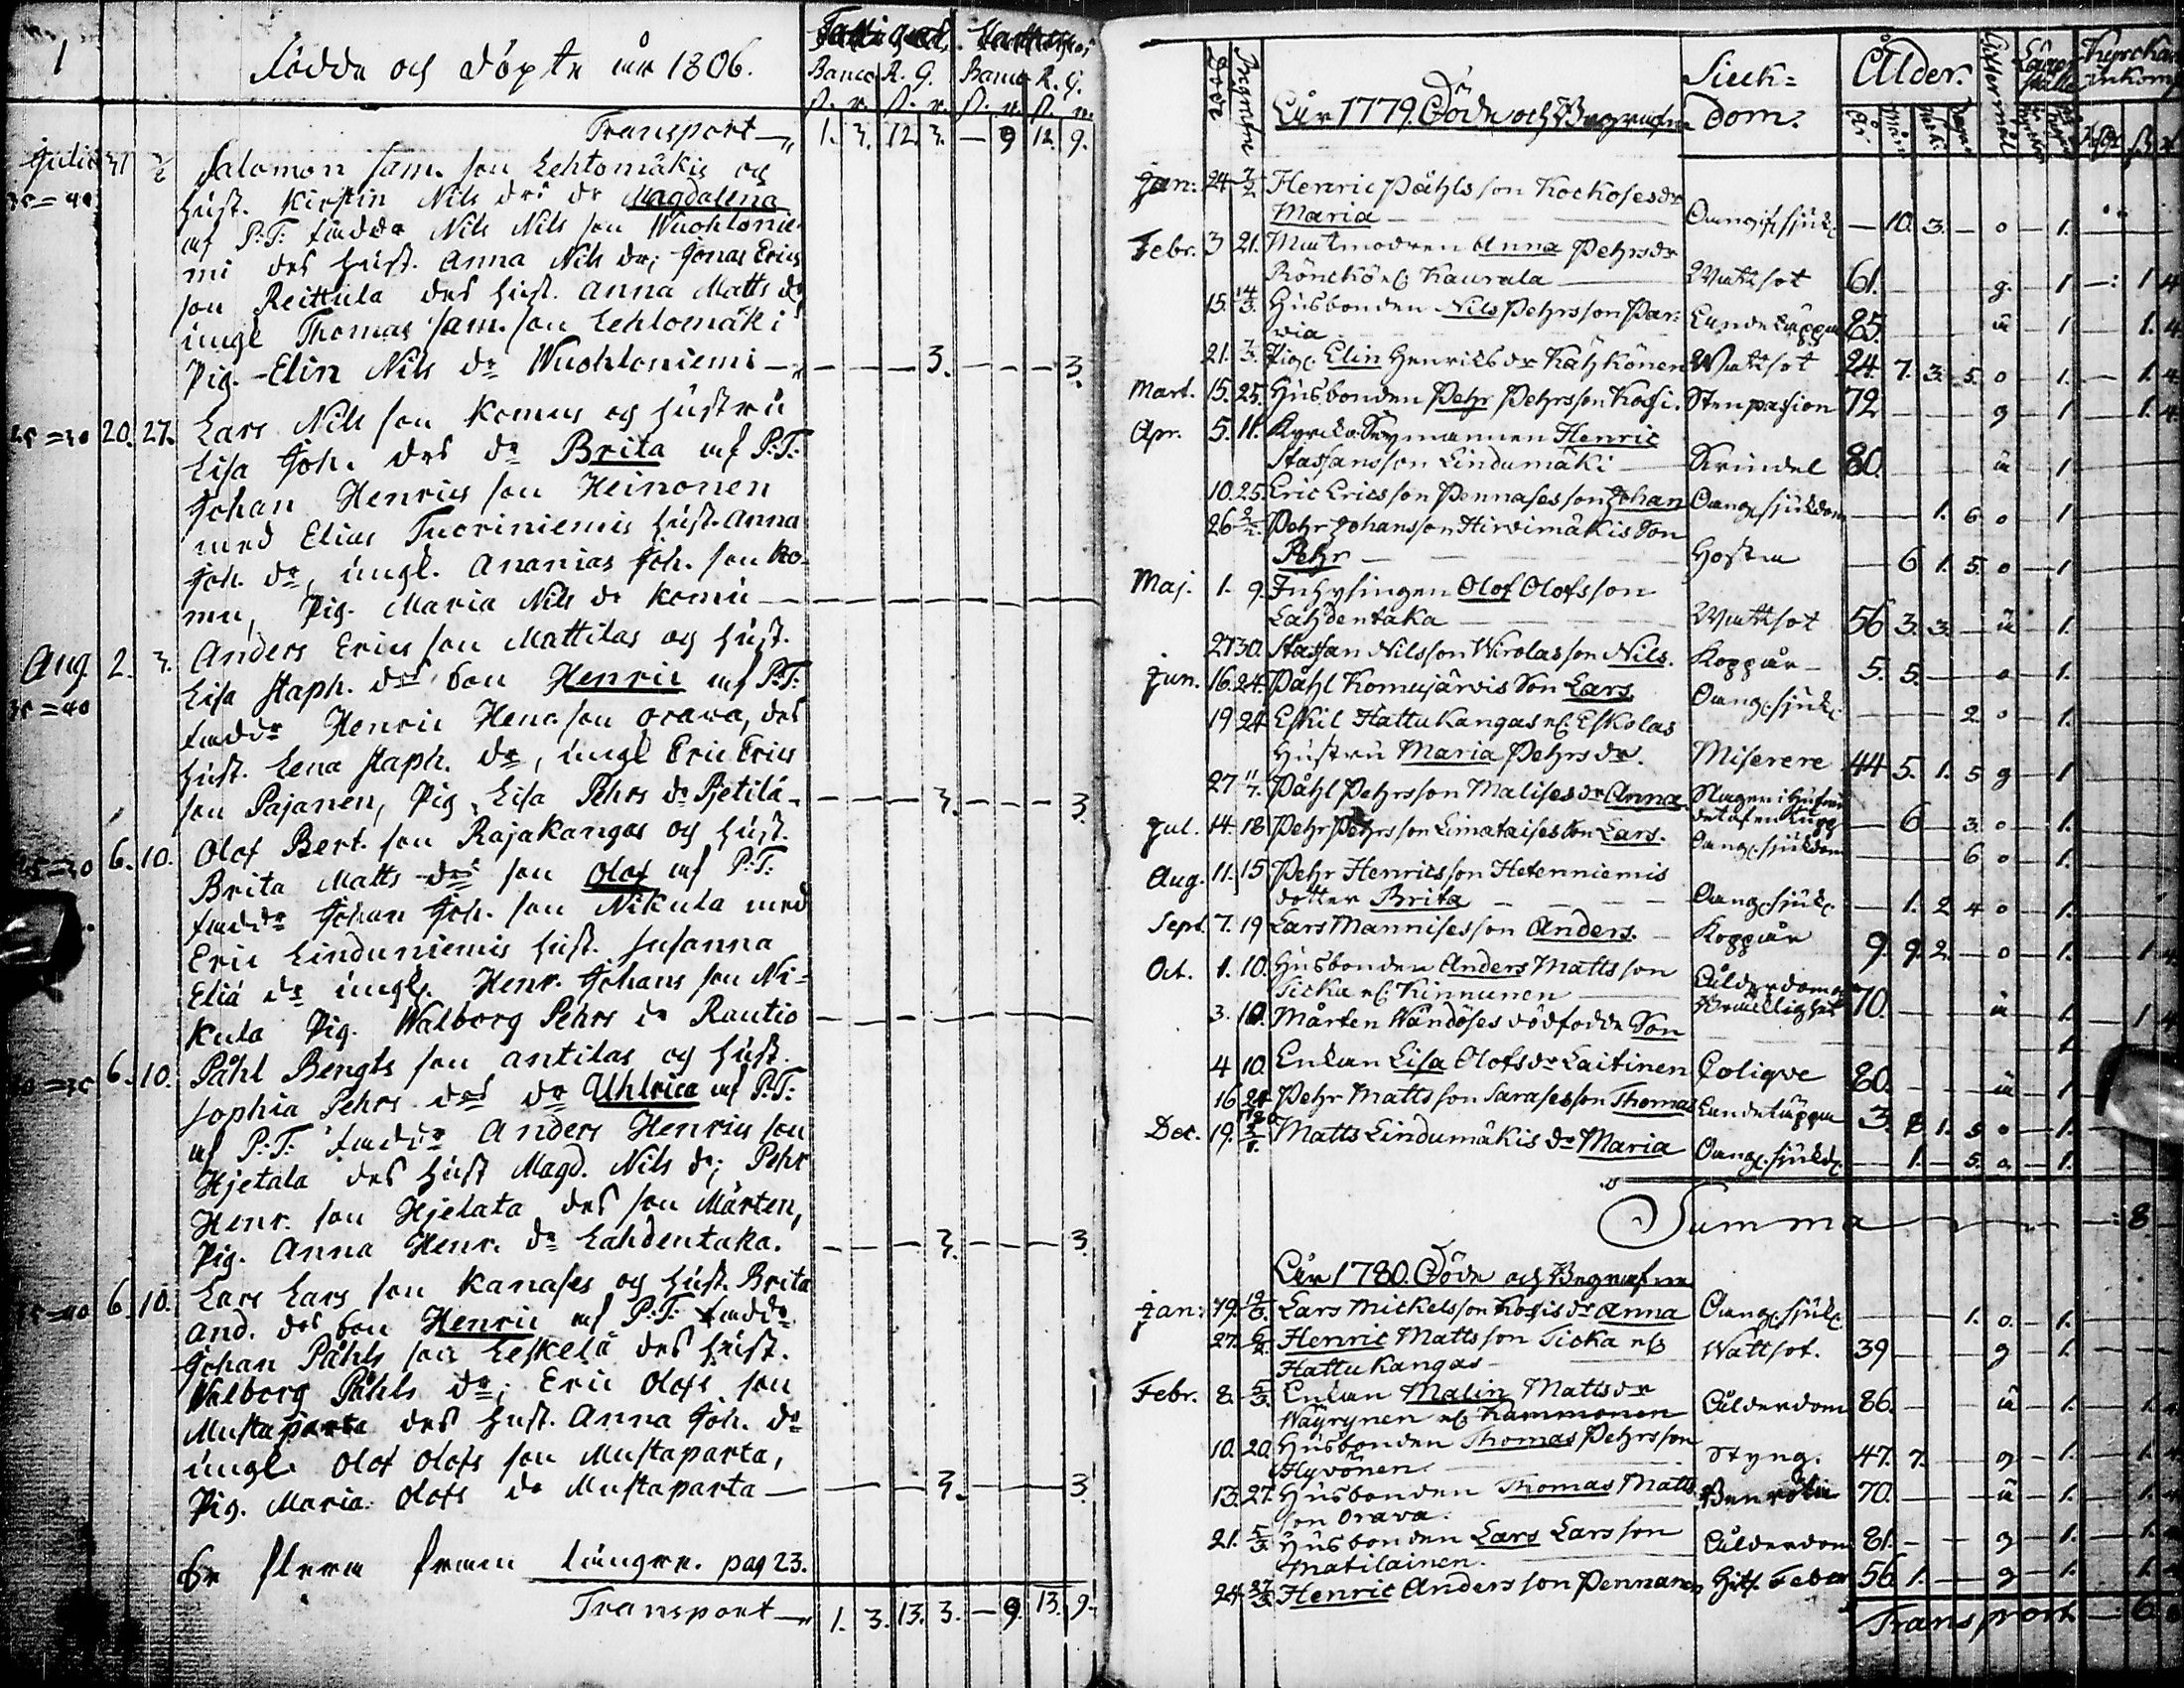 1
Födde och Döpte år 1806.
Banco R. G. Banco R. G.
Transport 1. 3. 12. 3. — 9 12. 9.
Julii 31 2/8 Salomon Sam. son Lehtomäkis og
35=40 hust. Kirstin Nils drs dr Magdalena
af P:T: faddr Nils Nils son Wuohtonie-
mi des hust. Anna Nils dr; Jonas Erics
son Reittula des hust. Anna Matts dr
ungl Thomas Sam. son Lehtomäki
Pig. Elin Nils dr Wuohtoniemi — 3. — 3.
25=30 20. 27. Lars Nils son Komus og hustru
Lisa Joh. drs dr Brita af P:T:
Johan Henrics son Heinonen
med Elias Tuoriniemis hust. Anna
Joh. dr, ungl. Ananias Joh. son Ko-
mu, Pig. Maria Nils dr Komu
Aug. 2. 3. Anders Erics son Mattilas og hust.
35=40 Lisa Staph. drs son Henric af P:T:
faddr Henric Henr. son Orava, des
hust. Lena Staph. dr, ungl Eric Erics
son Pajanen, Pig. Lisa Pehrs dr Pjetilä — 3. — 3.
25=30 6. 10. Olof Bert. son Rajakangas og hust.
Brita Matts drs son Olof af P:T:
faddr Johan Joh. son Nikula med
Eric Linduniemis hust. Susanna
Eliä dr ungl. Henr. Johans son Ni-
kula Pig. Walborg Pehrs dr Rautio
6. 10. Påhl Bengts son Antilas og hust.
Sophia Pehrs drs dr Uhlrica af P:T:
af P:T: faddr Anders Henrics son
Hjetala des hust Magd. Nils dr; Pehr
Henr. son Hjelata des son Mårten,
Pig. Anna Henr. dr Lahdentaka. — 3. — 3.
6. 10. Lars Lars son Kanases og hust. Brita
And. drs son Henric af P:T: faddr
Johan Påhls son Leskelä des hust.
Walborg Påhls dr; Eric Olofs son
Mustaparta des hust. Anna Joh. dr
ungl. Olof Olofs son Mustaparta,
Pig. Maria Olofs dr Mustaparta — 3. — 3.
Se flera fram längre. pag 23.
Transport 1. 3. 13. 3. — 9. 13. 9.
Åhr 1779. Döde och Begrafne
Siuk=dom. Ålder. Kyrcka
Jan: 24 7/2 Henric Påhlsson Kockoses dr
Maria Oang. sjuk. — 10. 3. — o — 1.
Febr. 3 21. Matmodren Anna Pehrsdr
Rönckö Kaurala Wattsot 61. g. — 1 — 1 4
15. 14/3. Husbonden Nils Pehrsson Par-
via 85. ä — 1 — 1. 4
21. 7/3. Pig. Elin Henricsdr Kähkönen Wattsot 24. 7. 3. 5. o — 1. — 1. 4
Mart. 15. 25. Husbonden Pehr Pehrsson Kossi. Stenpassion 72 g 1 — 1. 4
Apr. 5. 11. Henric
Staffansson Lindumäki Swindel 80. ä 1
10. 25 Eric Ericsson Pennases son Johan Oang. sjukdom 1. 6 o 1
26 Pehr Johansson Hirvimäkis Son
Pehr Hosta — 6 1. 5. o — 1
Maj. 1. 9. Inhysingen Olof Olofsson
Lahdentaka Wattsot 56 3. 3. — ä 1.
27 30. Staffan Nilsson Wirolas son Nils. Koppår 5. 5. — o 1.
Jun. 16. 24. Påhl Komujärvis Son Lars. Oang. sjuk. 2. o 1.
19 24 Eskil Hattukangas Eskolas
Hustru Maria Pehrsdr. Miserere 44 5. 1. 5 g — 1
27 11/7. Påhl Pehrsson Malises dr Anna — 6 — 3. o — 1.
Jul. 14. 18 Pehr Pehrsson Limataises Son Lars. Oang. sjukdom 6 o — 1.
Aug. 11. 15 Pehr Henricsson Hetenniemis
dotter Brita Oang. sjuk. 1. 2 4 o 1.
Sept. 7. 19 Lars Mannises son Anders. Koppår 9. 9. 2. — o — 1. 1. 4
Oct. 1. 10. Husbonden Anders Mattsson
Ticka Kinnunen Ålderdoms Bräcklighet 70. ä 1. 1 4
3. 10. Mårten Wändöses dödfödde Son 1
4 10. Enkan Lisa Olofsdr Laitinen Colique 80. ä 1
16 24 Pehr Mattsson Sarases son Thomas 3. 8 1. 5 o — 1.
Dec. 19. Matts Lindumäkis dr Maria Oang. sjukd. 1. — 5. o 1.
Summa 8
Åhr 1780. Döde och Begrafne
Jan: 19. Lars Mickelsson Kossis dr Anna Oang. sjuk. 1. o. 1.
27. 6/2. Henric Mattsson Ticka
Hattukangas Wattsot. 39 g 1.
Febr. 8. 5/3. Enkan Malin Mattsdr
Wäyrynen Kammonen Ålderdom 86. ä 1. 1.
10. 20. Husbonden Thomas Pehrsson
Hyvönen. Styng. 47. 7. g 1. 1.
13. 27. Husbonden Thomas Matts
son Orava. Benröta 70. ä 1.
21. 5/3. Husbonden Lars Larsson
Matilainen. Ålderdom 81. g 1.
24. Henric Andersson Pennanen Hits. Feber 56 1. g 1.
Transport 6